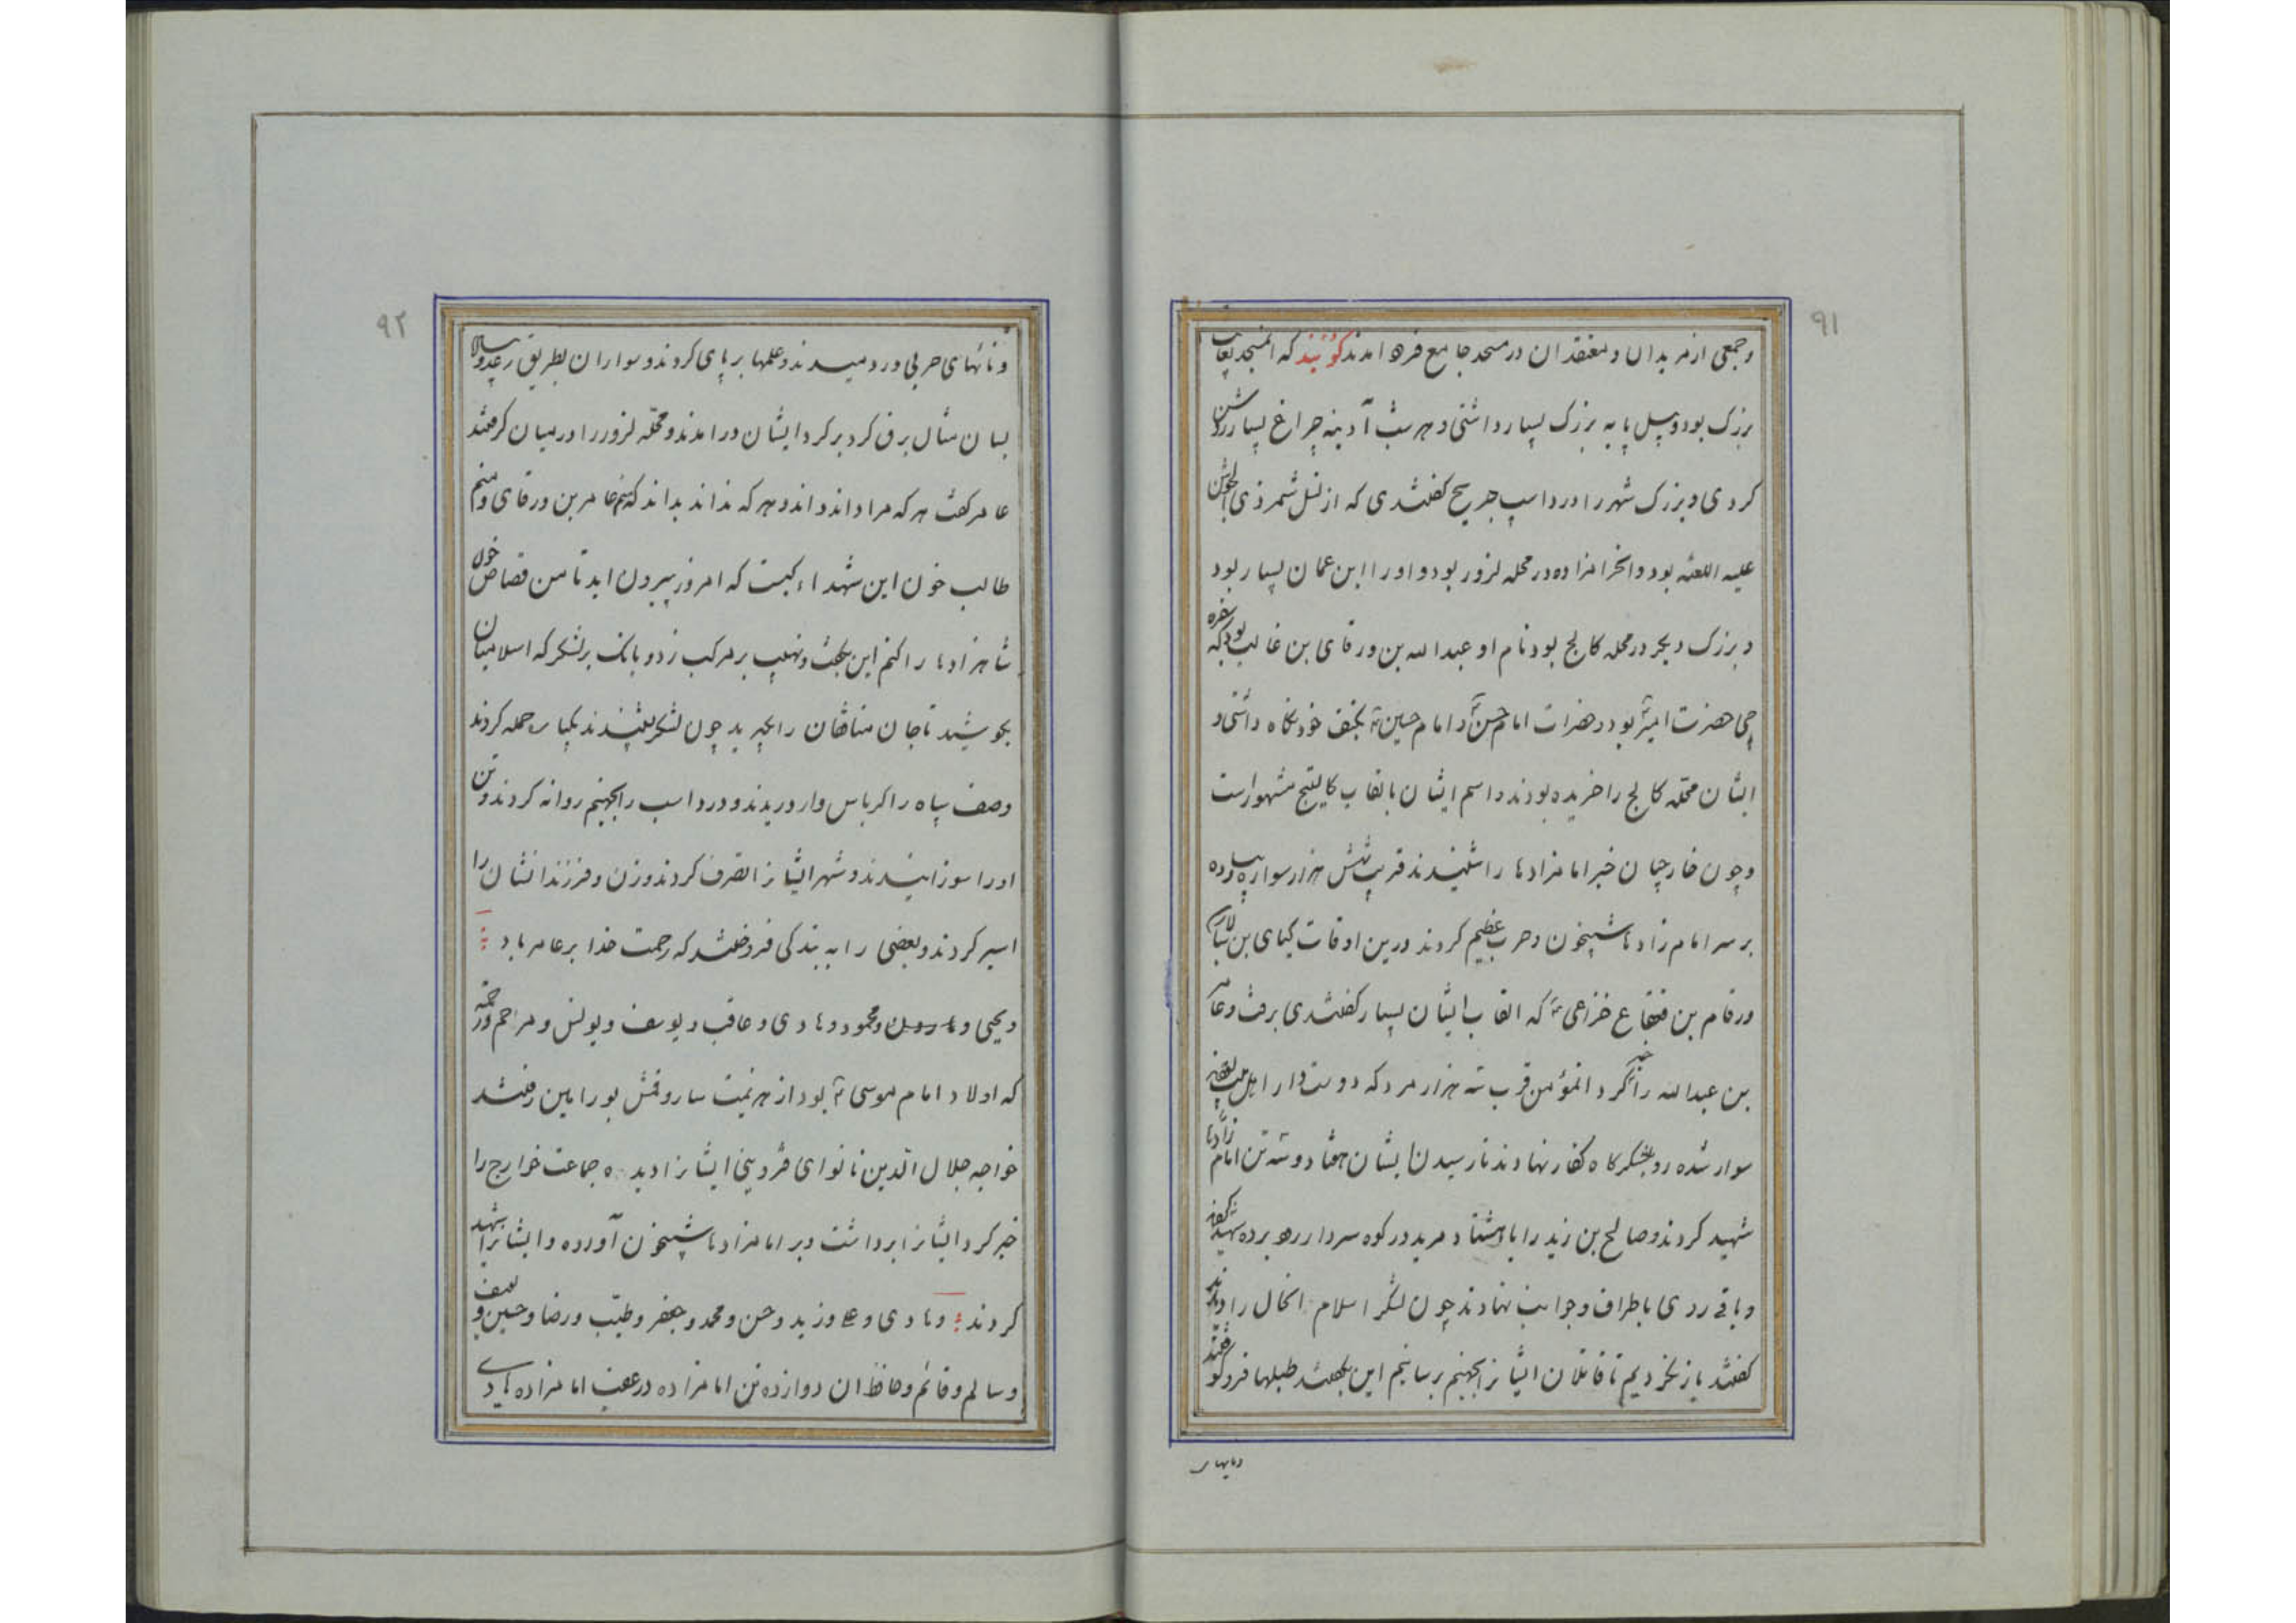 ۹۱
وجمعی از مریدان و معتقدان در مسجد جامع فرود امدند گویند که انمسجد بغایت
بزرک بود و چهل پایه بزرک بسیار داشتی و هر شب آدینه چراغ بسیار روشن
کردی و بزرک شهر را درداسب جریح کفتندی که از نسل شمر ذی الجوشن
علیه اللعنه بود وانحرامزاده در محله لزور بود و او را ابن عمان بسیار بود
و بزرک دیکر در محله کالج بود نام او عبدالله بن ورقای بن غالب بود که
حضرت امیر بود در حضرات امام حسن و امام حسین بکتف خود نکاه داشتی و
ایشان محله کالج را خریده بودند و اسم ایشان بالقاب مشهور است
وچون خارجیان خبر امامزادها را شنیدند قریب شش هزار سوار پیاده
بر سر امام زادها شبیخون و حرب عظیم کردند درین اوقات کیای بن
ورقام بن قنقاع خزاعی که القاب ایشان بسیار کفتندی برفت و عامر
بن عبدالله را خبر کرد انمؤمن قرب سه هزار مرد که دوست دار اهل بیت
سوار شده رو بلشکرکاه کفار نهادند تا رسیدن ایشان هفتاد و سه تن امام زادها
شهید کردند و صالح بن زید را با هشتاد مرید در کوه سردار رود برده شهید
و باقی روی باطراف و جوانب نهادند چون لشکر اسلام انحال را دیدند
کفتند باز نکردیم تا قاتلان ایشانرا بجهنم برسانیم این بکفتند طبلها فرو کوفتند
ونایهای حربی در دمیدند و علمها بر پای کردند و سواران بطریق رعد
بسان مثال برق کرد بر کرد ایشان در امدند و محله لزور را در میان کرفتند
عامر کفت هر که مرا داند داند و هر که نداند بداند که منم عامر بن ورقای و منم
طالب خون این شهداء کیست که امروز بیرون اید تا من قصاص خون
شاهزادها را کنم این بکفت و نهیب بر مرکب زد و بانک بر لشکر که اسلامیان
بکوشید تا جان منافقان را بکیرید چون لشکر بشنیدند بیکبار حمله کردند
وصف سپاه را کرباس وار دریدند و درداسب را بجهنم روانه کردند و تن
او را سوزانیدند و شهر ایشانرا تصرف کردند و زن و فرزندانشان را
اسیر کردند و بعضی را به بندکی فروختند که رحمت خدا بر عامر باد
و یحیی و هارون و محمود و هادی و عاقب و یوسف و یونس و مراحم و
که اولاد امام موسی بود از هزیمت سارو قمش بورامین رفتند
خواجه جلال الدین نانوای قزوینی ایشانرا دیده جماعت خوارج را
خبر کرد ایشانرا برداشت و بر امامزادها شبیخون آورده و ایشانرا شهید
کردند و هادی و علی و زید و حسن و محمد و جعفر و طیب و رضا و حسین و
و سالم و قائم و حافظ ان دوازده تن امامزاده در عقب امامزاده هادی
۹۲